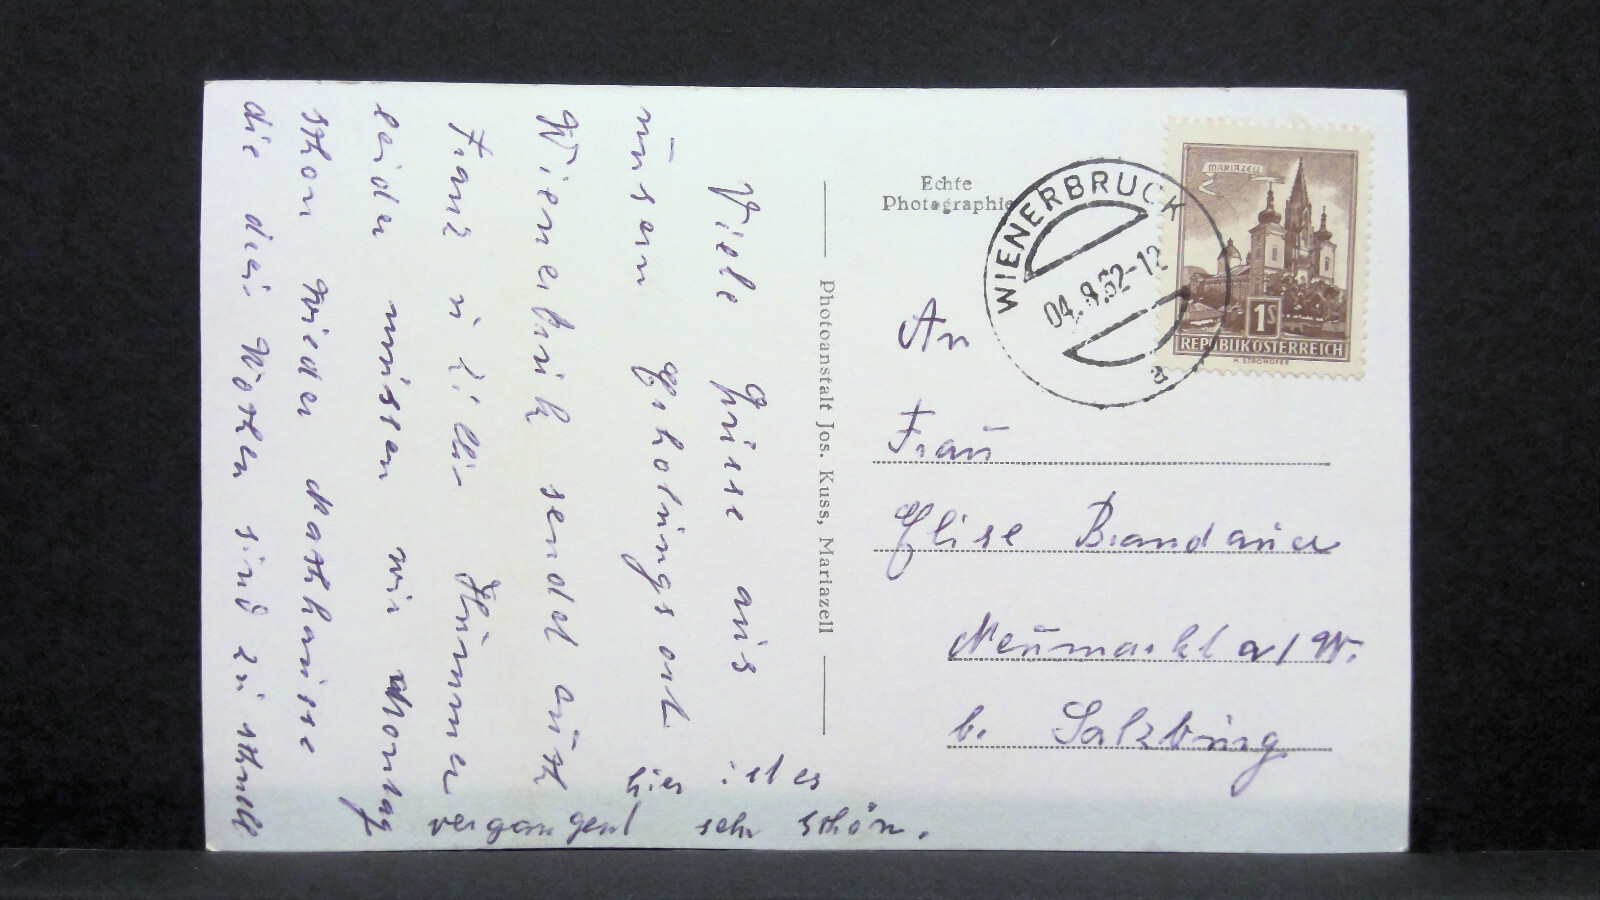 Viele Grüsse aus
unsern Erholungsort
Wienerbruck sendet euch
Franz u. Cilli
leider müssen wir Montag
schon wieder nachhause
die drei Wochen sind zu schnell
vergangen! sehr schön.
hier ist es
Echte
Photographie
Photoanstalt Jos. Kuss, Mariazell
WIENERBRUCK
a
MARIAZELL
1S
REPUBLIK ÖSTERREICH
An
Frau
Elise Brandauer
Neumarkt a/W.
b. Salzburg